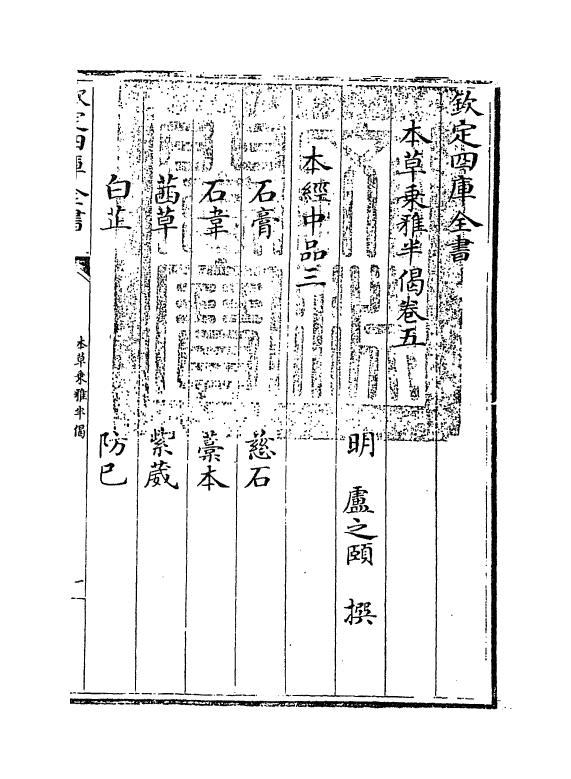 欽定四庫全書
本草乗雅半偈卷五
明　盧之頤　撰
本經中品三
石膏　慈石
石韋　藁本
茜草　紫葳
白芷　防已
欽定四庫全書
本草乗雅半偈
一